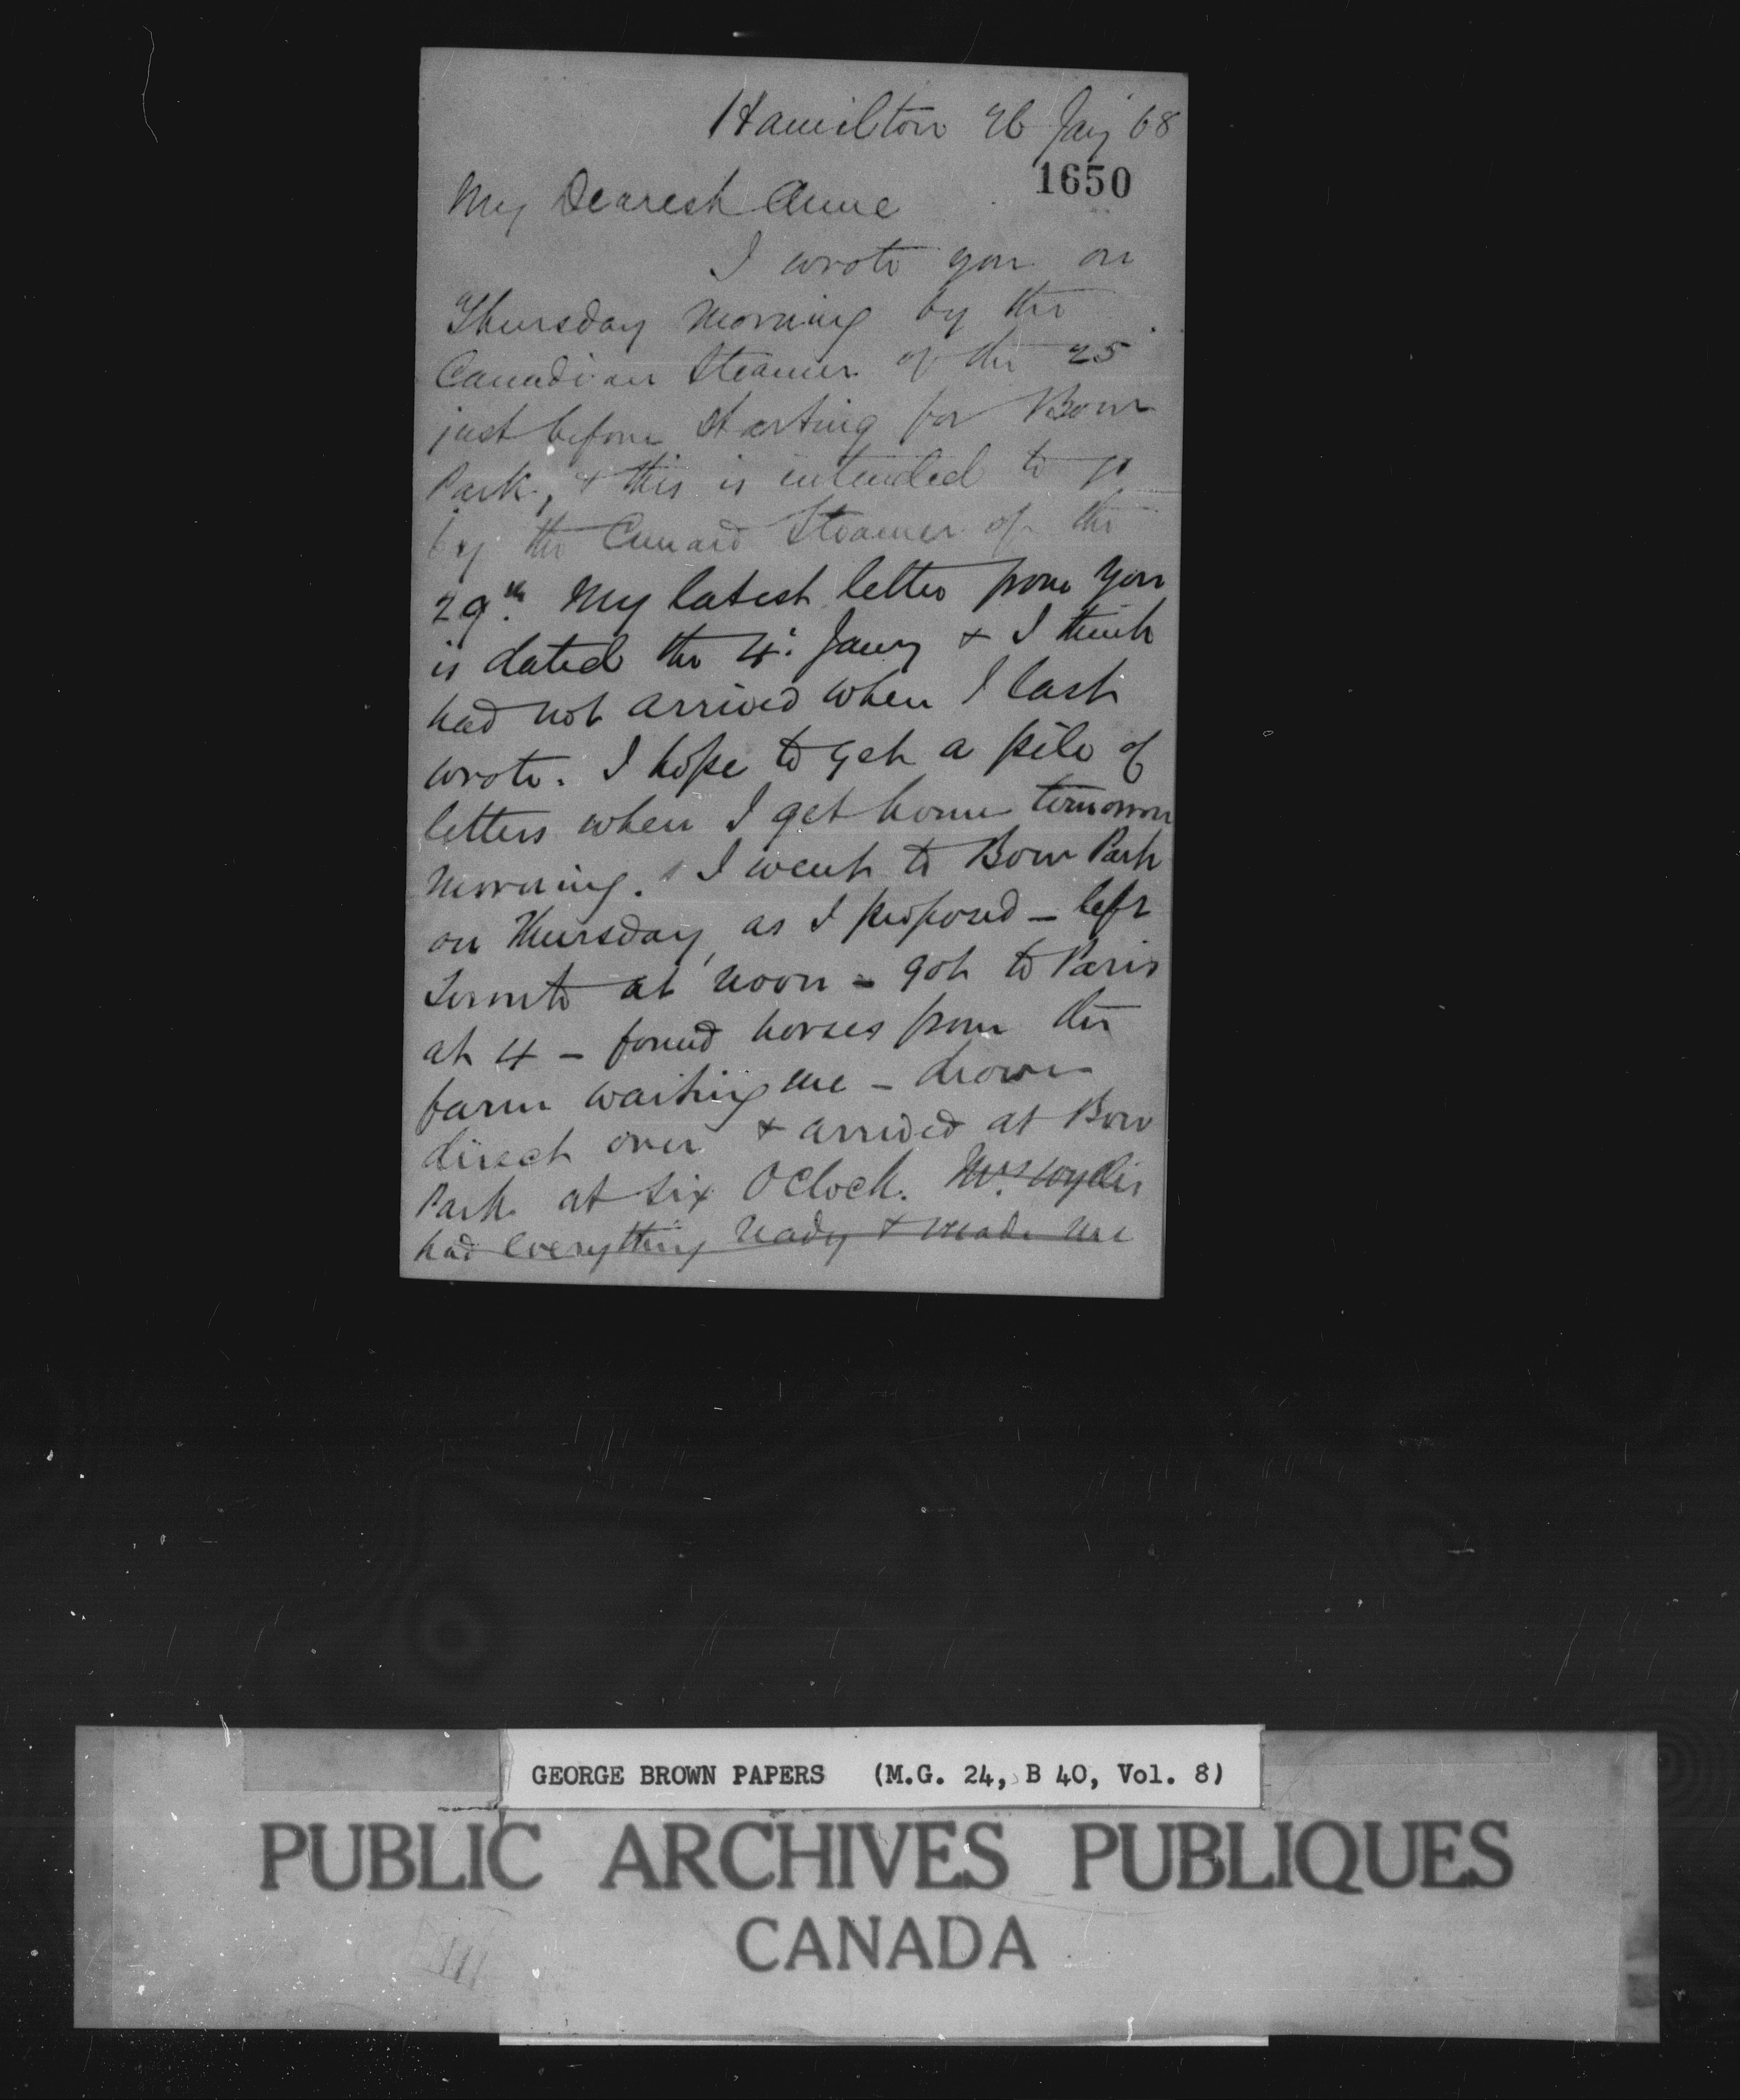 Hamilton 26 Jany 68
1650
My Dearest Anne
I wrote you on
Thursday morning by the
Canadian Steamer of the 25
just before starting for Bow
Park, & this is intended to go
by the Cunard Steamer of the
29th. My latest letter from you
is dated the 4. Jany & I think
had not arrived when I last
wrote. I hope to get a pile of
letters when I get home tomorrow
morning. I went to Bow Park
on Thursday, as I proposed - left
Toronto at noon - got to Paris
at 4 - found horses from the
farm waiting me - drove
direct over & arrived at Bow
Park at six O'Clock. Mrs
had everything ready & made me
GEORGE BROWN PAPERS (M.G. 24, B 40, Vol. 8)
PUBLIC ARCHIVES PUBLIQUES
CANADA